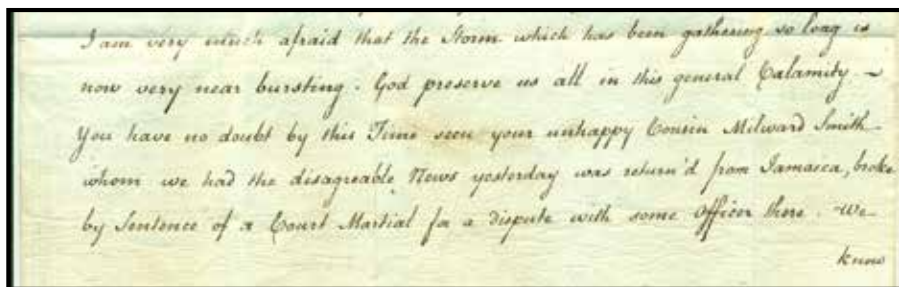 I am very much afraid that the Storm which has been gathering so long is
now very near bursting. God preserve us all in this general Calamity. ~
You have no doubt by this Time seen your unhappy Cousin Milward Smith
whom we had the disagreable News yesterday was return'd from Jamaica, broke
by Sentence of a Court Martial for a dispute with some Officer there. We
know